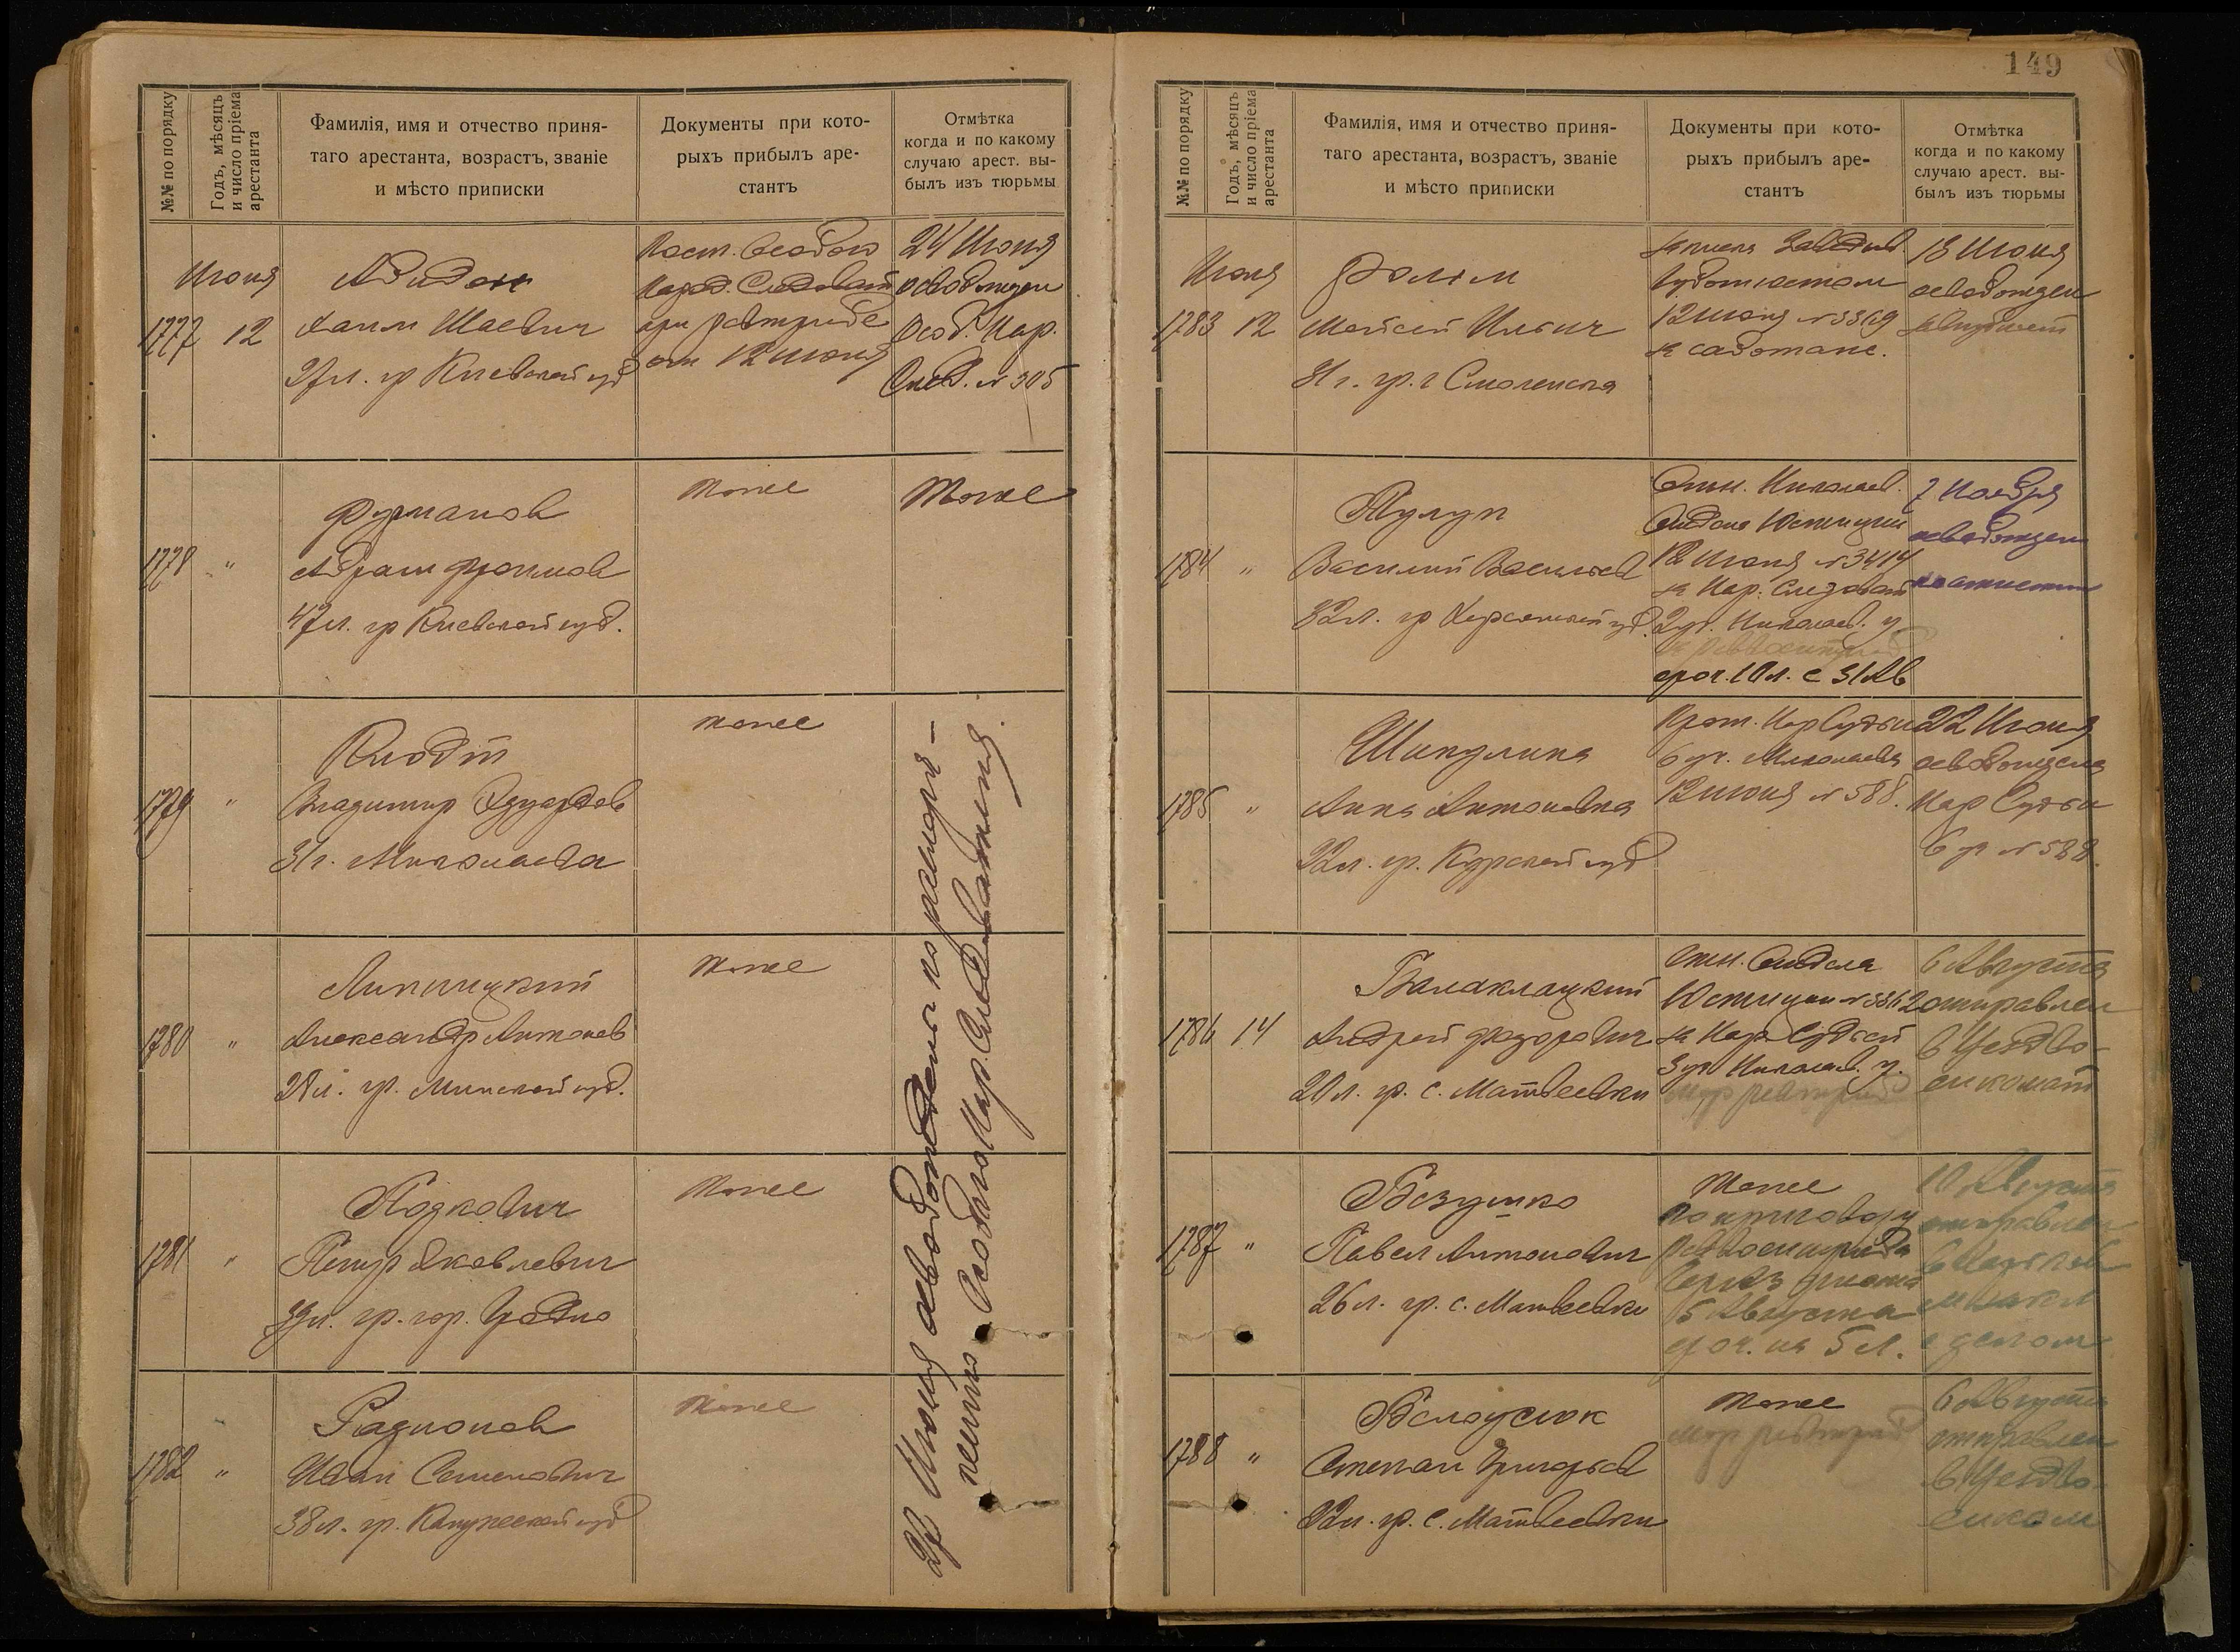 №№ по порядку
Годъ, мѣсяцъ
и число пріема
арестанта
Фамилія, имя и отчество приня-
таго арестанта, возрастъ, званіе
и мѣсто приписки
Документы при кото-
рыхъ прибылъ аре-
стантъ
Отмѣтка
когда и по какому
случаю арест. вы-
былъ изъ тюрьмы
1777
Июня
12
Абидон
Хаим Шаевич
27 л. гр Киевской губ
Пост. Особого
Народ. Следоват
при Ревтриб
от 12 июня
24 Июня
освобожден
Особ. Нар.
След. № 305
1778
"
Фурманов
Абрам
47 л. гр Киевской губ.
Тоже
Тоже
1779
"
Клодт
Владимир Эдуардов
31 г. Николаева
Тоже
1780
"
Липницкий
Александр Антонов
28 л. гр. Минской губ.
Тоже
1781
"
Подкович
Петр Яковлевич
39 л. гр. гор. Гродно
Тоже
1782
"
Радионов
Иван Семенович
38 л. гр. Калужской губ
Тоже
27 Июня освобождены по распоря-
Особого Нар. Следователя.
149
№№ по порядку
Годъ, мѣсяцъ
и число пріема
арестанта
Фамилія, имя и отчество приня-
таго арестанта, возрастъ, званіе
и мѣсто приписки
Документы при кото-
рыхъ прибылъ аре-
стантъ
Отмѣтка
когда и по какому
случаю арест. вы-
былъ изъ тюрьмы
1783
Июня
12
Мойсей Ильич
31 г. гр. г Смоленска
12 Июня № 3369
за саботаж.
18 Июня
освобожден
1784
"
Тулуп
Василий Васильев
32 л. гр Херсонской губ.
Отн. Николаев.
Отдела Юстиции
12 Июня № 3414
за Нар. Следоват
2 уч. Николаев. у
сроч. 10 л. с 31 Ав
7 Ноября
освобожден
по амнистии
1785
"
Шикулина
Анна Антоновна
22 л. гр. Курской губ
Прот. Нар Судьи
6 уч. Николаева
12 июня № 588.
22 Июня
освобождена
Нар Судьи
6 уч № 588.
1786
14
Балаклацкий
Андрей Федорович
20 л. гр. с. Матвеевки
Отн. Отдела
Юстиции № 3362
за Нар Судьей
3 уч Николаев. у.
6 Августа
отправлен
в Уездво-
енкомат
1787
"
Безушко
Павел Антонович
26 л. гр. с. Матвеевки
Тоже
по приговору
5 Августа
сроч. на 5 л.
10 Августа
отправлен
1788
"
Белоусюк
Степан Григорьев
32 л. гр. с. Матвеевки
Тоже
6 Августа
отправлен
в Уездво-
енком